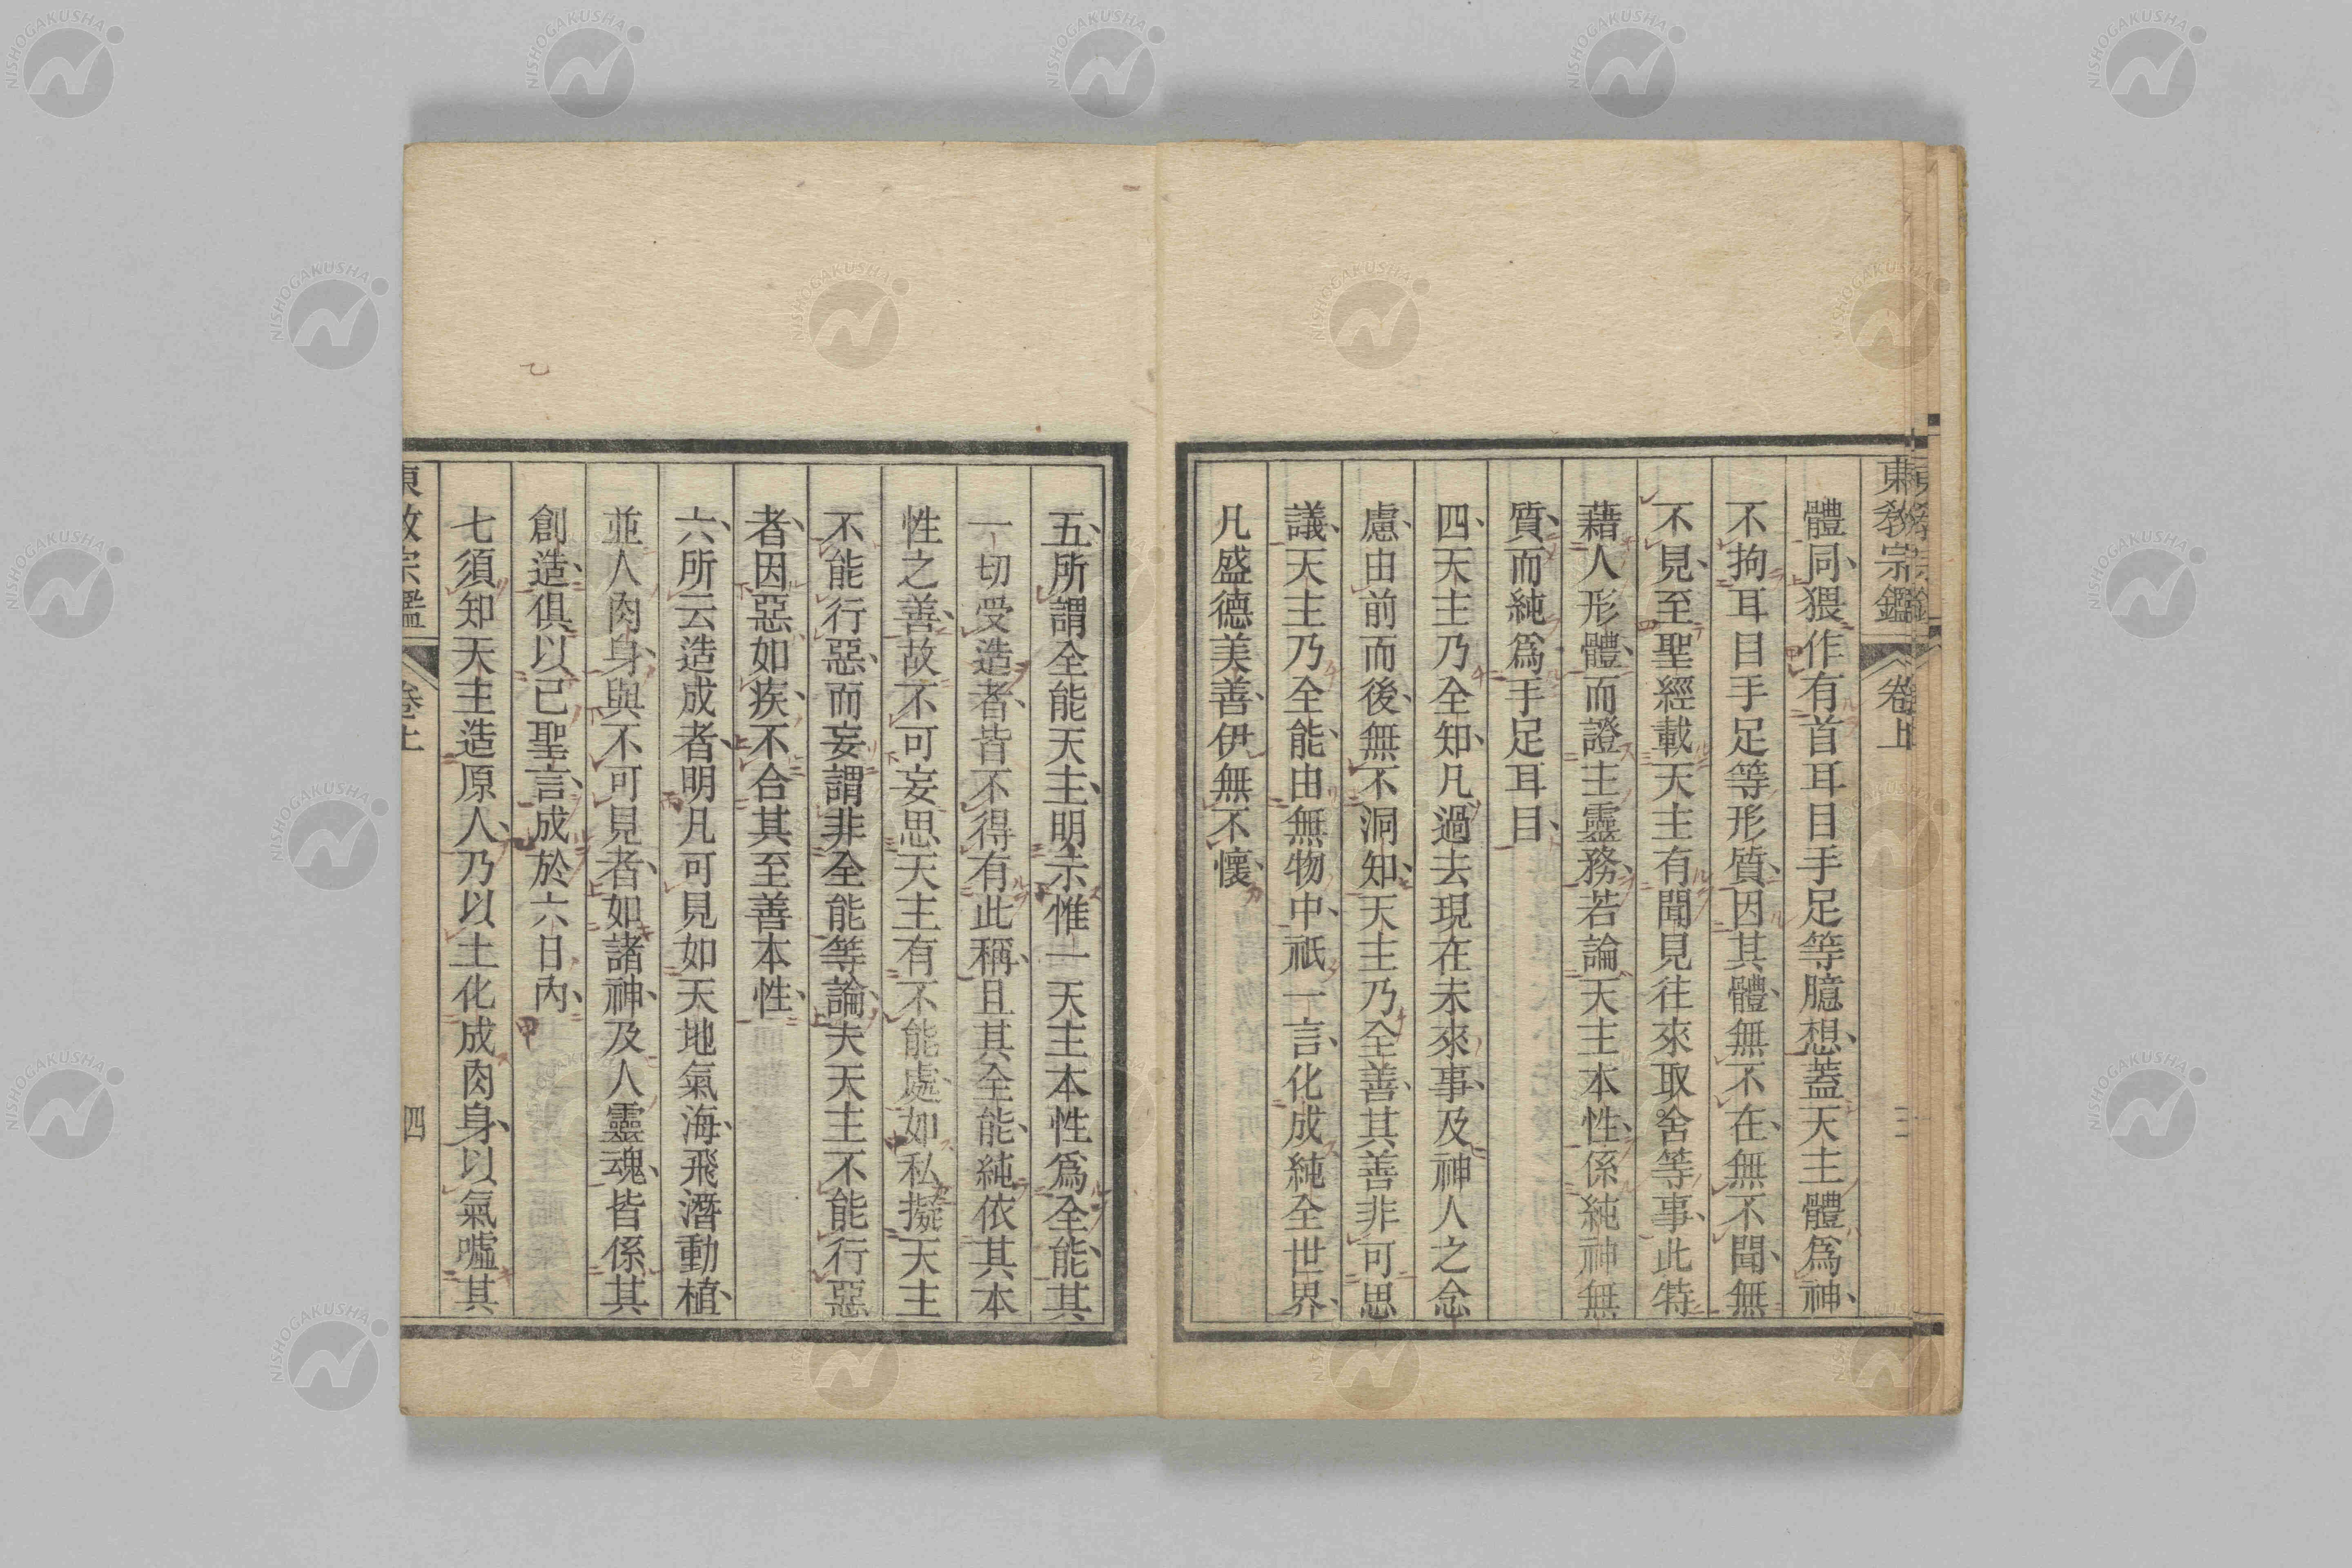 東教宗鑑 卷上 三
體同猥作有首耳目手足等臆想蓋天主體爲神
不拘耳目手足等形質因其體無不在無不聞無
不見至聖經載天主有聞見往來取舍等事此特
藉人形體而證主靈務若論天主本性係純神無
質而純爲手足耳目
四天主乃全知凡過去現在未來事及神人之念
慮由前而後無不洞知天主乃全善其善非可思
議天主乃全能由無物中祇一言化成純全世界
凡盛德美善伊無不懷
五所謂全能天主明示惟一天主本性爲全能其
一切受造者皆不得有此稱且其全能純依其本
性之善故不可妄思天主有不能處如私擬天主
不能行惡而妄謂非全能等論夫天主不能行惡
者因惡如疾不合其至善本性
六所云造成者明凡可見如天地氣海飛潛動植
並人肉身與不可見者如諸神及人靈魂皆係其
創造俱以己聖言成於六日內
七須知天主造原人乃以土化成肉身以氣噓其
東教宗鑑 卷上 四
NISHOGAKUSHA